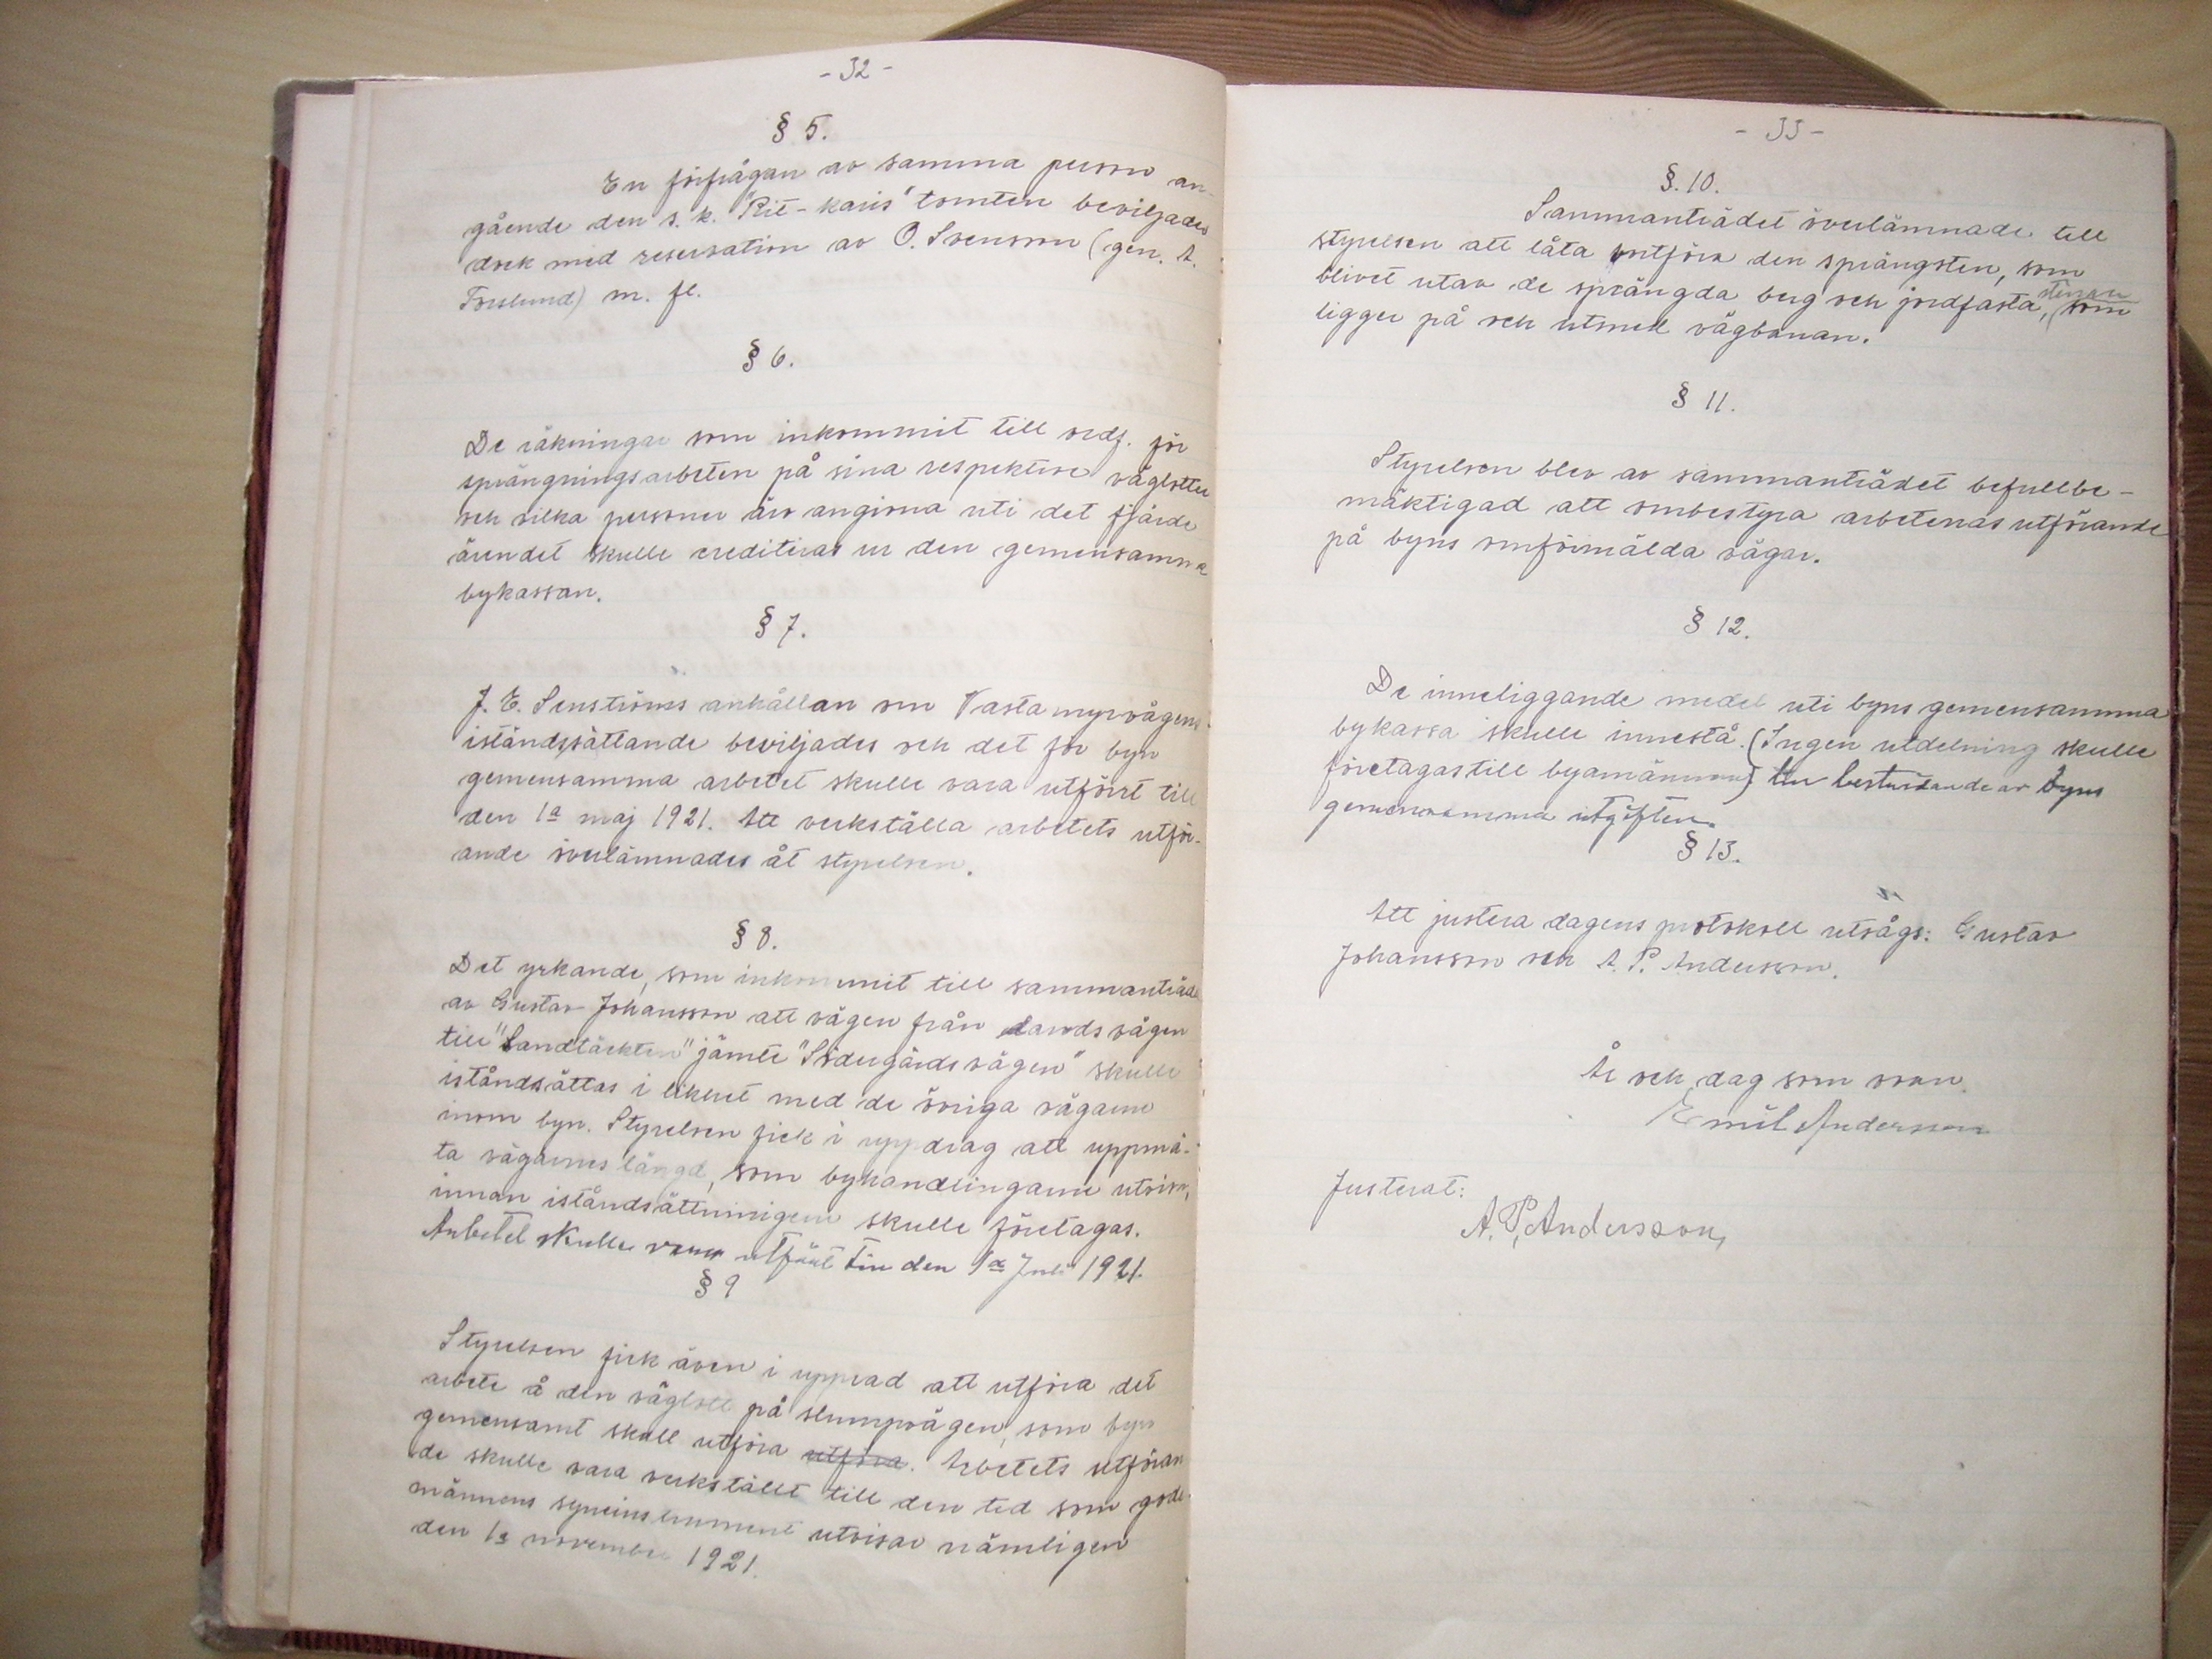 - 32 -
§ 5.
En förfrågan av samma person an-
gående den s. k. "Rit-karis" tomten beviljades
dock med reservation av O. Svensson (gen. A.
Forslund) m. fl.
§ 6.
De räkningar som inkommit till ordf. för
sprängningsarbeten på sina respektive väglotter
och vilka personer äro angivna uti det fjärde
ärendet skulle crediteras ur den gemensamma
bykassan.
§ 7.
J. E. Senströms anhållan om Vastamyrvägens
iståndssättande beviljades och det för byn
gemensamma arbetet skulle vara utfört till
den 1a maj 1921. Att verkställa arbetets utför-
ande överlämnades åt styrelsen.
§ 8.
Det yrkande, som inkommit till sammanträde
av Gustav Johansson att vägen från landsvägen
till "Sandtäckten" jämte "Södergårdsvägen" skulle
iståndsättas i likhet med de övriga vägarne
inom byn. Styrelsen fick i uppdrag att uppmä-
ta vägarnes längd, som byhandlingarne utvisa,
innan iståndsättningen skulle företagas.
Arbetet skulle vara utfört till den 1a Juli 1921.
§ 9
Styrelsen fick även i upprad att utföra det
arbete å den väglott på slumpvägen, som byn
gemensamt skall utföra utföra. Arbetets utföran
de skulle vara verkställt till den tid som gode
männens syneinstrument utvisar nämligen
den 1a november 1921.
- 33 -
§. 10.
Sammanträdet överlämnade till
styrelsen att låta bortföra den sprängsten, som
blivet utav de sprängda berg och jordfasta, stenar
(som
ligger på och utmed vägbanan.
§ 11.
Styrelsen blev av sammanträdet befullbe-
mäktigad att ombestyra arbetenas utförande
på byns omförmälda vägar.
§ 12.
De inneliggande medel uti byns gemensamma
bykassa skulle innestå. (Ingen utdelning skulle
företagas till byamännen) till bestridande av byns
gemensamma utgifter.
§ 13.
Att justera dagens protokoll utsågs: Gustav
Johansson och A. P. Andersson.
År och dag som ovan.
Emil Andersson
Justerat:
A. P. Andersson,